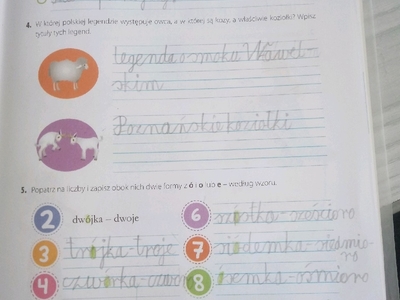 4. W której polskiej legendzie występuje owca, a w której są kozy, a właściwie koziołki? Wpisz
tytuły tych legend.
legenda o smoku Wawel-
skim
Poznańskie koziołki
5. Popatrz na liczby i zapisz obok nich dwie formy z ó i o lub e – według wzoru.
2 dwójka – dwoje 6 szóstka - sześcioro
3 trójka - troje 7 siódemka - siedmio-
ro
4 czwórka - czwo 8 ósemka - ośmioro